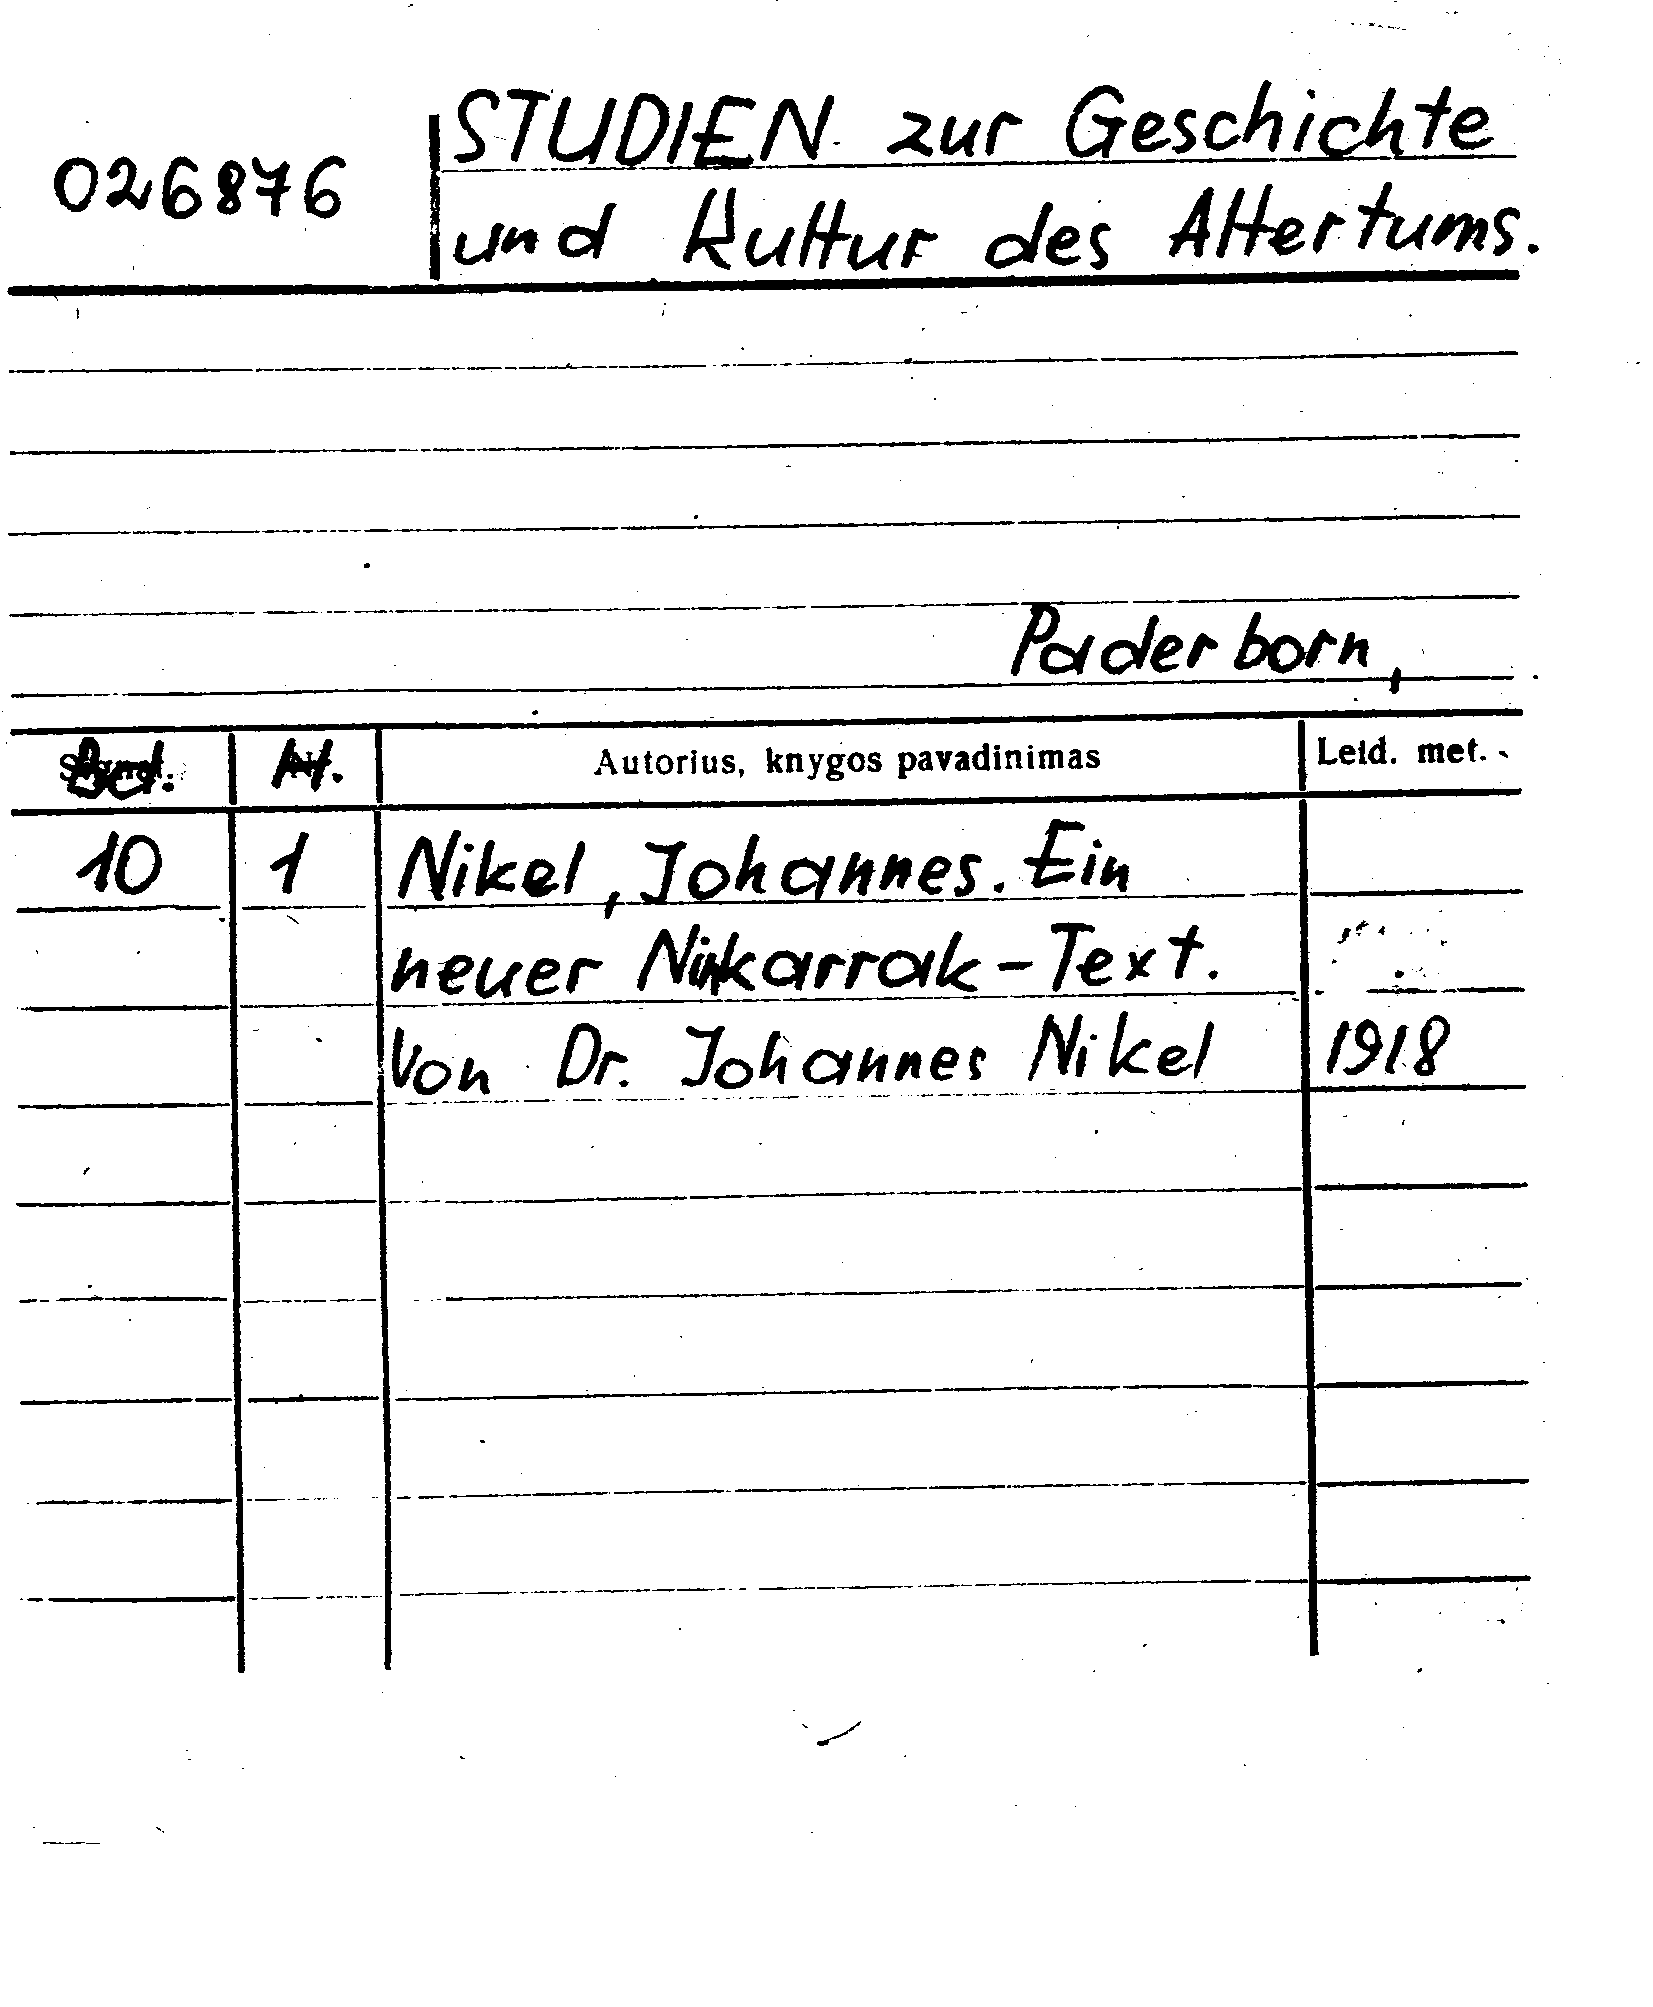 STUDIEN zur Geschichte
026876
und Kultur des Altertums.
Paderborn,
Bd. H. Autorius, knygos pavadinimas Leid. met.
10 1 Nikel, Johannes. Ein
neuer Nikarrak-Text.
Von Dr. Johannes Nikel 1918